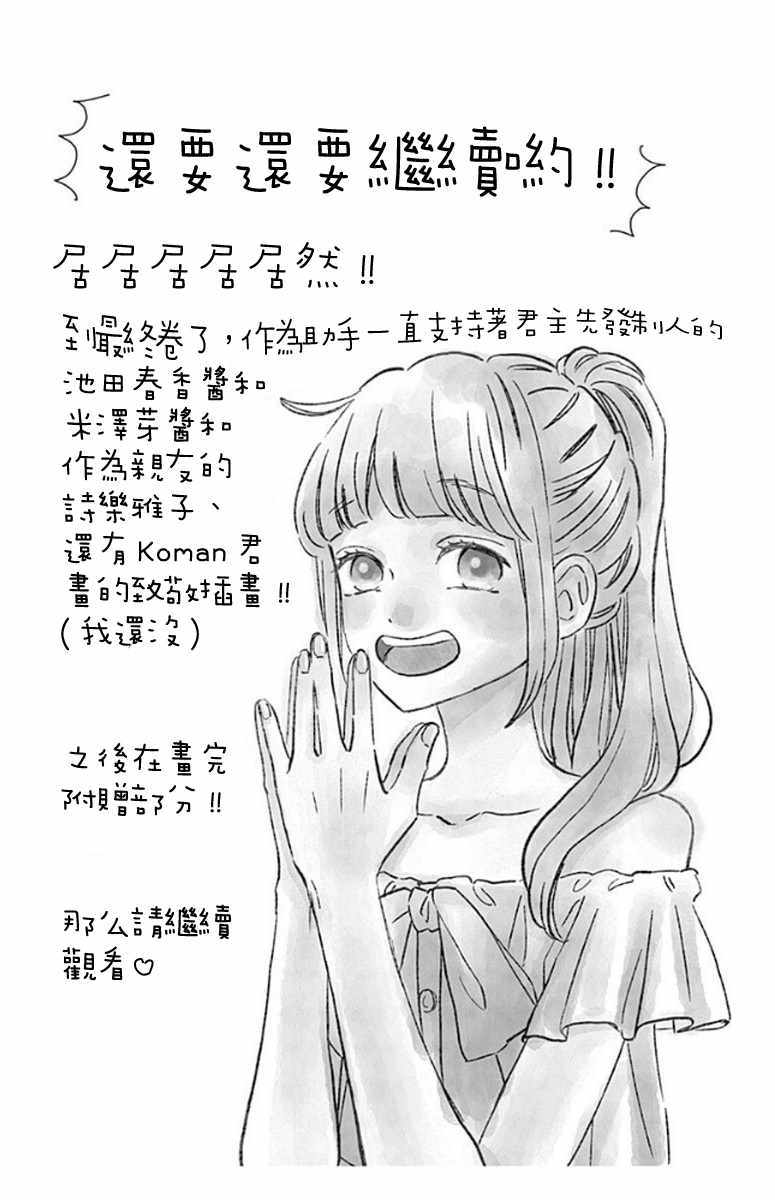 還要還要繼續喲!!
居居居居居然!!
到最終卷了,作為助手一直支持著君主先發制人的
池田春香醬和
米澤芽醬和
作為親友的
詩樂雅子、
還有Koman君
畫的致敬插畫!!
(我還沒)
之後在畫完
附贈部分!!
那么請繼續
觀看♡